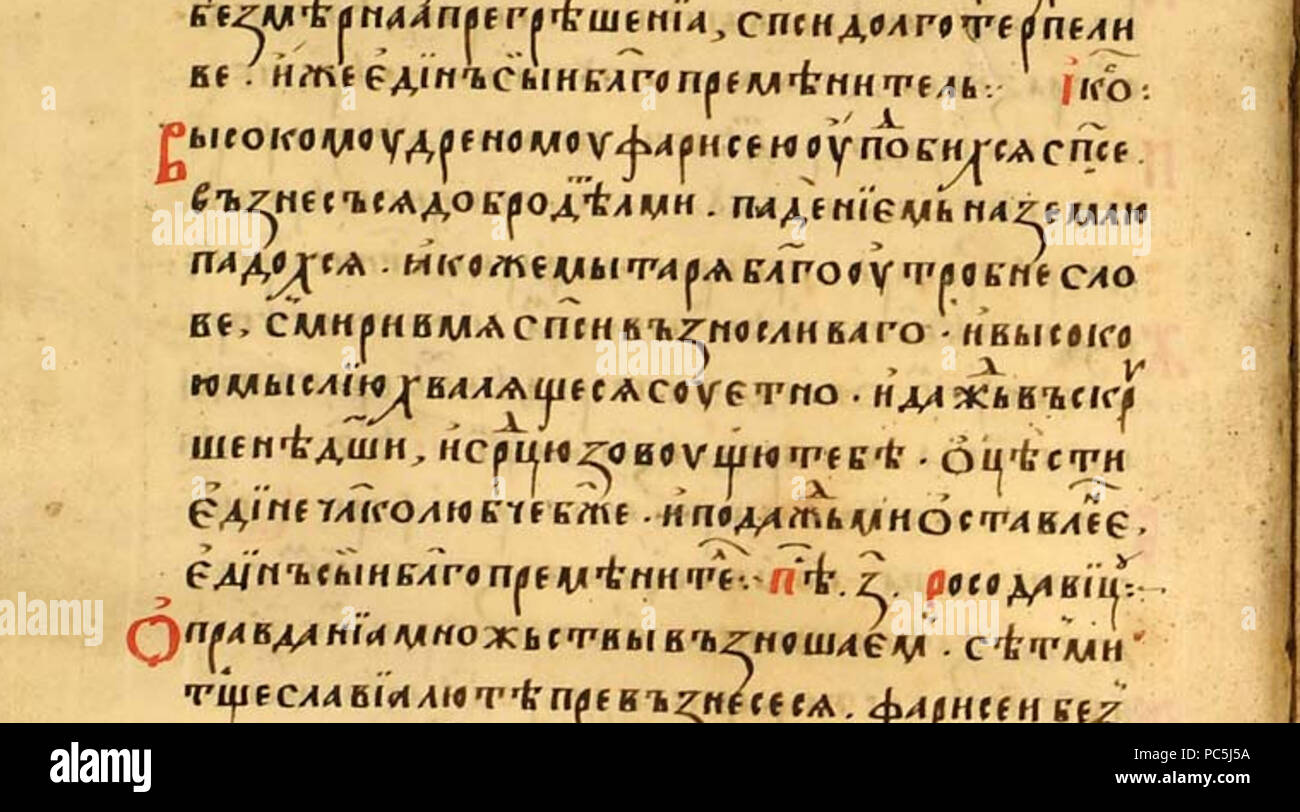 безмѣрнаа прегрѣшенїа, спси долготерпели
ве . и҆же є҆дїнъ сы̏и бл҃гопремѣнитель : і҆ко҃с :
Высокомоудреномоу фарисею оу҆пⷣобихся сп҃се .
възнесъся добродⷮѣлми . паденїємь на землю
падохся . ꙗ҆коже мытаря бл҃гооу҆тробне сло
ве, см̏ири вмя сп҃си възносливаго . и҆ высоко
ю мыслїю хвалящеся соуєтно . и҆ дажⷣь въ скрꙋ
шенѣ дш҃и, и҆ срⷣцю зовоущю тебѣ . ѻ҆цѣсти
є҆дїне чл҃колюбче бж҃е . и҆ подажⷣь ми ѻ҆ставле҃є,
є҆дїнъ сы̏и бл҃гопремѣните҃ : п҃ѣ . з҃ . росо давїцꙋ :
Ѻ҆правданїа множьствы възношаєм . сѣт҃ми
тщ҃еславїа лютѣ превъзнесеся . фарисеи без
alamy
PC5J5A
www.alamy.com